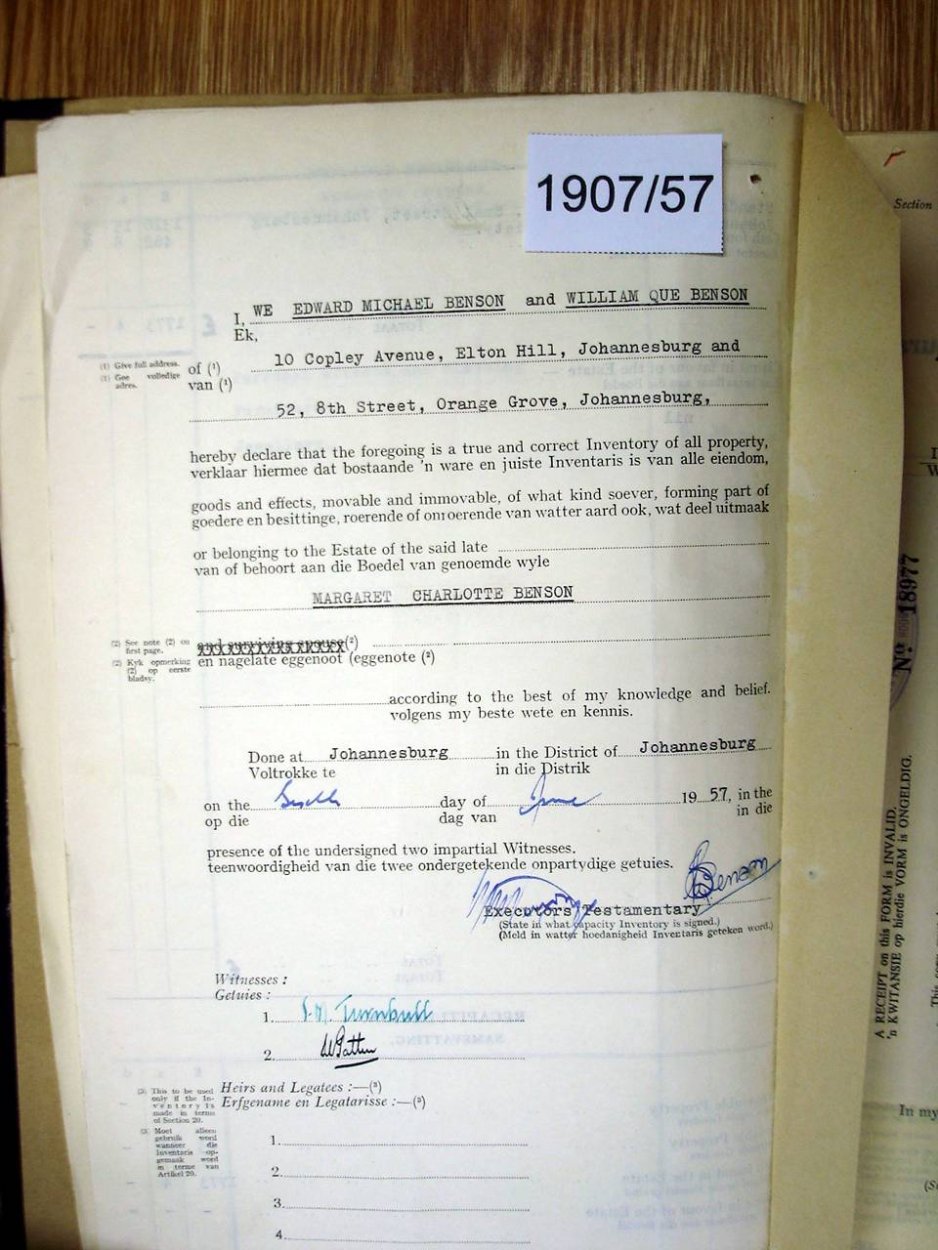 1907/57
Section
I, WE EDWARD MICHAEL BENSON and WILLIAM QUE BENSON
Ek,
(1) Give full address.
(1) Gee volledige adres.
of (1) 10 Copley Avenue, Elton Hill, Johannesburg and
van (1)
52, 8th Street, Orange Grove, Johannesburg,
hereby declare that the foregoing is a true and correct Inventory of all property,
verklaar hiermee dat bostaande 'n ware en juiste Inventaris is van alle eiendom,
goods and effects, movable and immovable, of what kind soever, forming part of
goedere en besittinge, roerende of onroerende van watter aard ook, wat deel uitmaak
or belonging to the Estate of the said late
van of behoort aan die Boedel van genoemde wyle
MARGARET CHARLOTTE BENSON
(2) See note (2) on
first page.
(2) Kyk opmerking
(2) op eerste
bladsy.
and surviving spouse (2)
en nagelate eggenoot (eggenote (2)
according to the best of my knowledge and belief.
volgens my beste wete en kennis.
Done at Johannesburg in the District of Johannesburg
Voltrokke te in die Distrik
on the day of June 1957, in the
op die dag van in die
presence of the undersigned two impartial Witnesses.
teenwoordigheid van die twee ondergetekende onpartydige getuies.
Benson
Executors Testamentary
(State in what capacity Inventory is signed.)
(Meld in watter hoedanigheid Inventaris geteken word.)
Witnesses :
Getuies :
1. Turnbull
2.
(3) This to be used
only if the In-
ventory is
made in terms
of Section 20.
(3) Moet alleen
gebruik word
wanneer die
Inventaris op-
gemaak word
in terme van
Artikel 20.
Heirs and Legatees :—(3)
Erfgename en Legatarisse :—(3)
1.
2.
3.
4.
No. 18977
A RECEIPT on this FORM is INVALID.
'n KWITANSIE op hierdie VORM is ONGELDIG.
In my